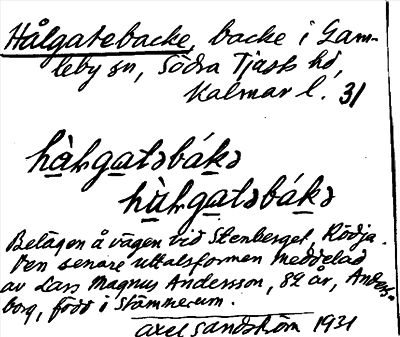 Hålgatebacke, backe i Gam-
leby sn, Södra Tjusts hd,
Kalmar l. 31
hàlgatəbákə
hùlgatəbákə
Belägen å vägen vid Stenberget, Rödja.
Den senare uttalsformen meddelad
av Lars Magnus Andersson, 82 år, Anders-
borg, född i Stämmerum.
Axel Sandström 1931